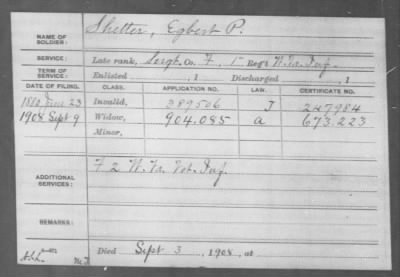 NAME OF SOLDIER: Shetter, Egbert P.
SERVICE: Late rank, Sergt. Co. F, 1 Reg't W. Va. Inf.
TERM OF SERVICE: Enlisted , 1 Discharged , 1
DATE OF FILING. CLASS. APPLICATION NO. LAW. CERTIFICATE NO.
1880 June 23 Invalid, 389506 J 247984
1908 Sept 9 Widow, 904.085 a 673.223
Minor,
ADDITIONAL SERVICES: F 2 W. Va. Vet. Inf.
REMARKS:
Died Sept 3, 1908, at